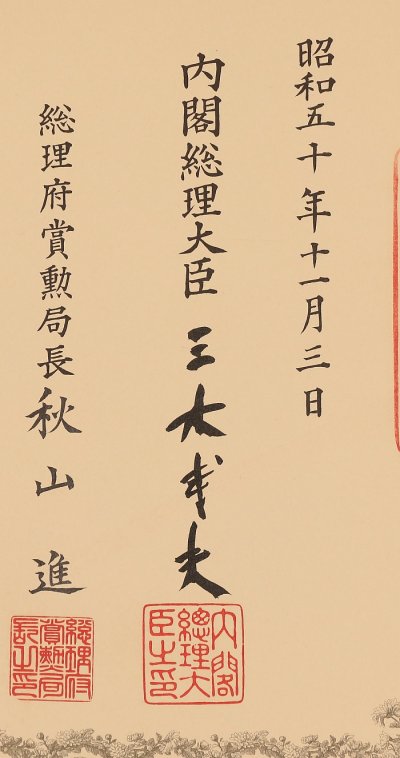 昭和五十年十一月三日
内閣総理大臣 三木武夫
総理府賞勲局長 秋山進
内閣
總理大
臣之印
総理府
賞勲局
長之印